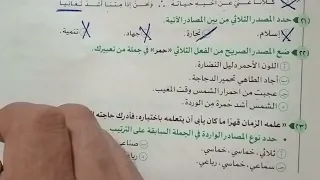 (٢١) حدد المصدر الثلاثي من بين المصادر الآتية.
إسلام. تجارة. جهاد. تنمية.
(٢٢) ضع المصدر الصريح من الفعل الثلاثي «حمر» في جملة من تعبيرك.
اللون الأحمر دليل النضارة.
أجاد الطاهي تحمير الدجاجة.
عجبت من احمرار الشمس وقت المغيب.
الشمس أشد حمرة من الوردة.
(٢٣) «علمه الزمان قهرًا ما كان يأبى أن يتعلمه باختياره؛ فأدرك حاجته
حدد نوع المصادر الواردة في الجملة السابقة على الترتيب
ثلاثي، خماسي، خماسي. صناعي
سماعي، خماسي، رباعي.